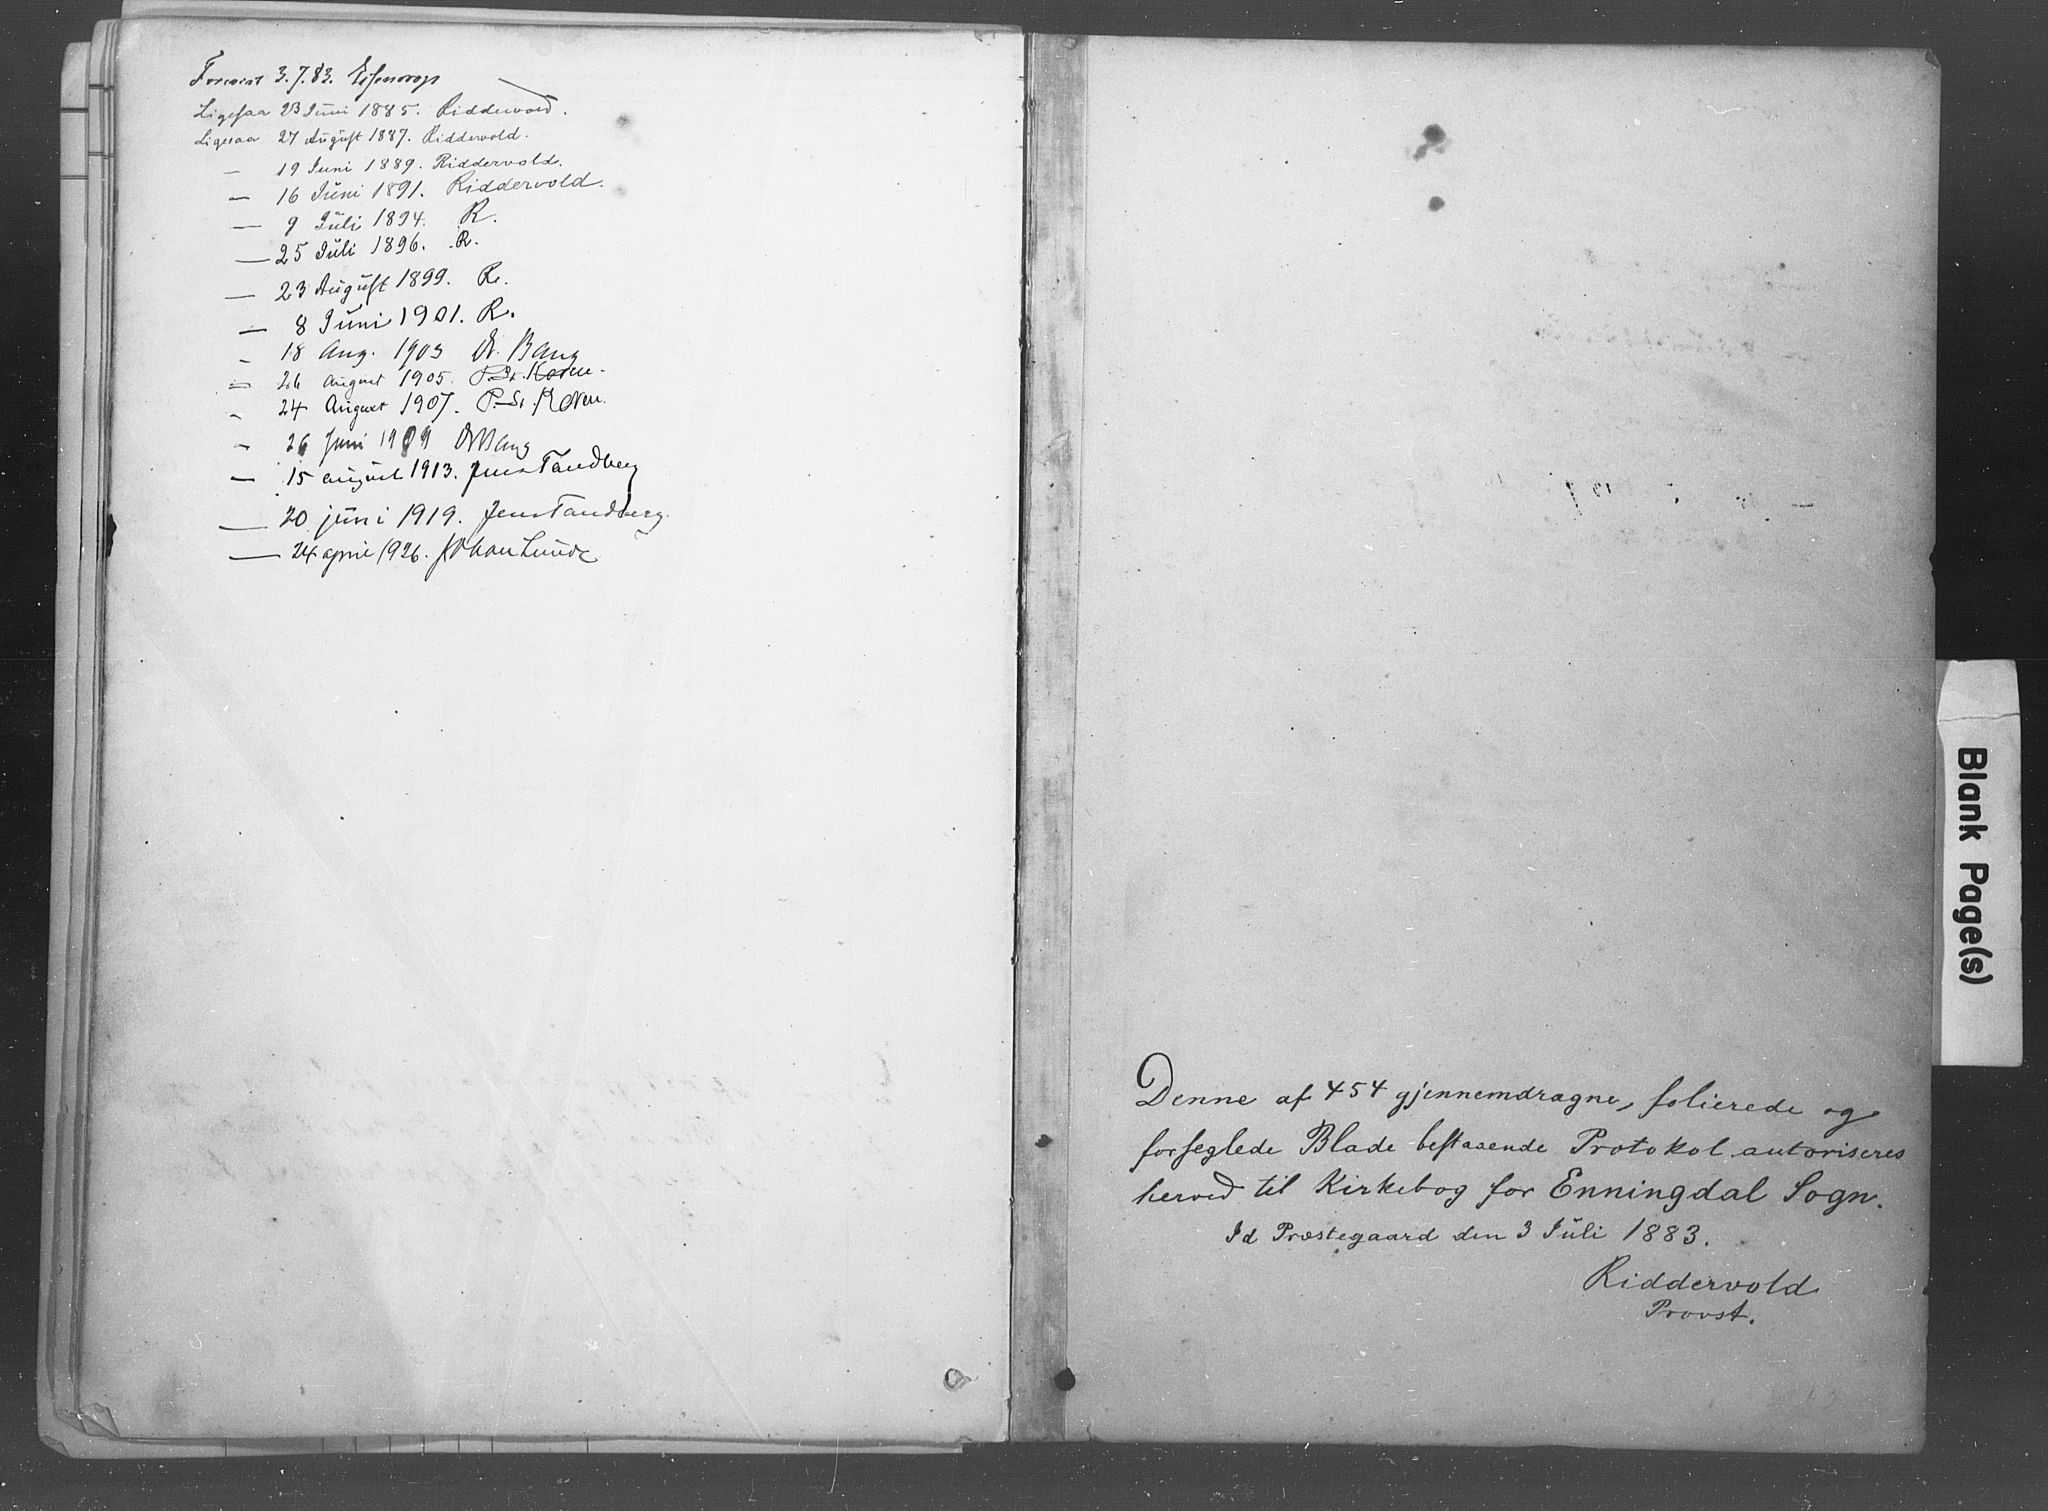 Forevist 3.7.83. Essendrop
Ligesaa 23 Juni 1885. Riddervold.
Ligesaa 27 August 1887. Riddervold.
— 19 Juni 1889. Riddervold.
— 16 Juni 1891. Riddervold.
— 9 Juli 1894. R.
— 25 Juli 1896. R.
— 23 August 1899. R.
— 8 Juni 1901. R.
— 18 Aug. 1903 Dr. Bang
— 26 August 1905. P. St. Koren.
— 24 August 1907. P. St. Koren.
— 26 Juni 1909 Dr Bang
— 15 august 1913. Jens Tandberg
— 20 juni 1919. Jens Tandberg.
— 24 april 1926. Johan Lunde
Denne af 454 gjennemdragne, folierede og
forseglede Blade bestaaende Protokol autoriseres
herved til Kirkebog for Enningdal Sogn.
Id Præstegaard den 3 Juli 1883.
Riddervold
Provst.
Blank Page(s)